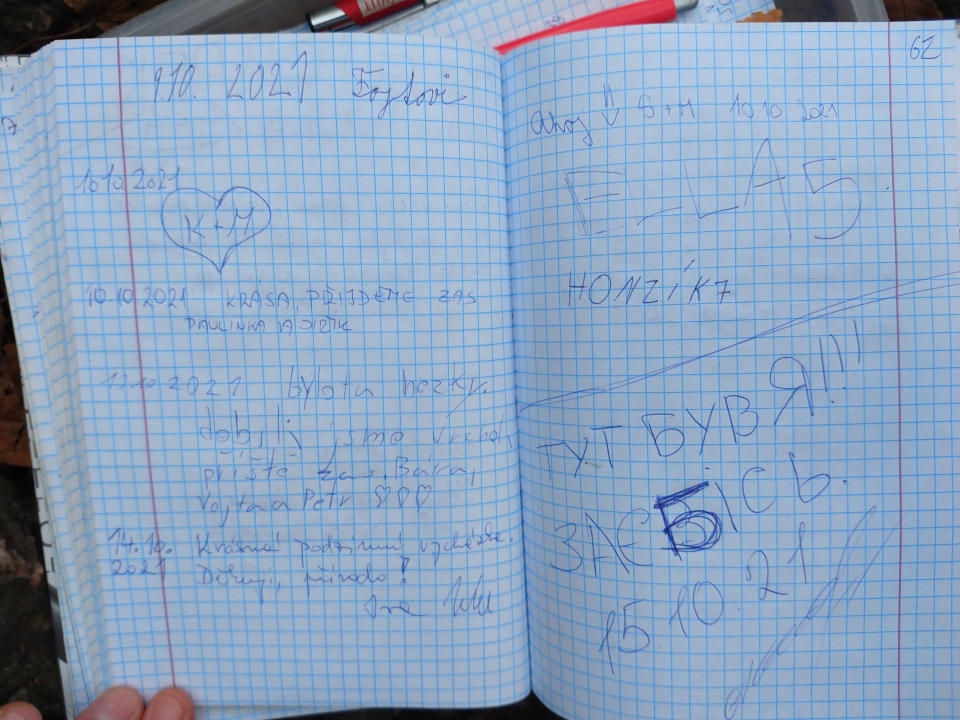 9.10. 2021 Fojtovi
10.10.2021
K+M
10.10.2021 KRÁSA, PŘIJDEME ZAS
PAULINKA A JIŘÍK
13.10 2021 byloto hezky.
dobili jsme vrchol,
příště zas. Bára,
Vojta a Petr ♡♡♡
14.10. Krásná podzimní vycházka.
2021 Děkuji, přírodo!
62
Ahoj S+M 10.10 2021
ELLA 5
HONZÍK 7
ТУТ БУВ Я!!!
ЗАЄБІСЬ.
15.10.21